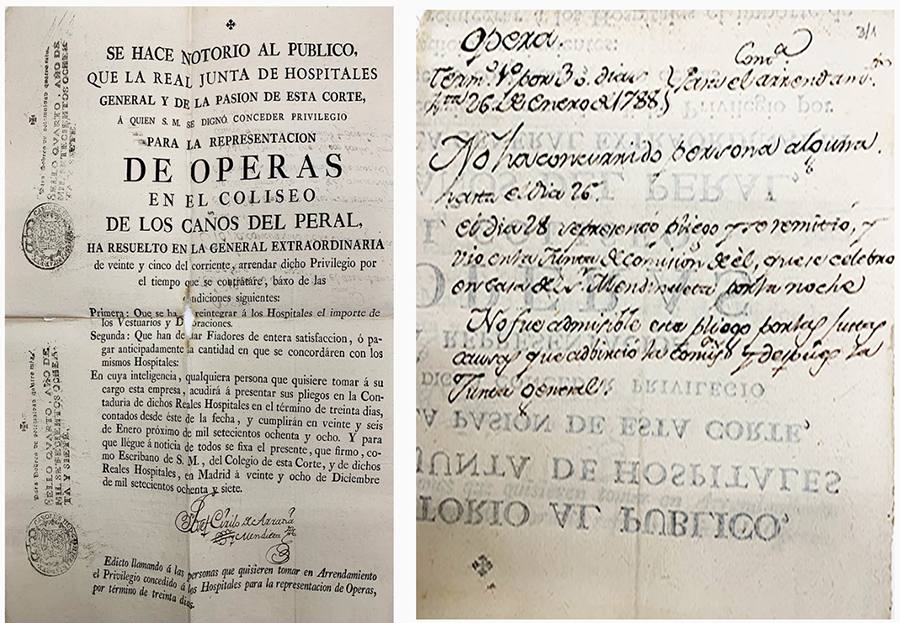 SE HACE NOTORIO AL PUBLICO,
QUE LA REAL JUNTA DE HOSPITALES
GENERAL Y DE LA PASION DE ESTA CORTE,
Á QUIEN S. M. SE DIGNÓ CONCEDER PRIVILEGIO
PARA LA REPRESENTACION
DE OPERAS
EN EL COLISEO
DE LOS CAÑOS DEL PERAL,
HA RESUELTO EN LA GENERAL EXTRAORDINARIA
de veinte y cinco del corriente, arrendar dicho Privilegio por
el tiempo que se contratáre, báxo de las
condiciones siguientes:
Primera: Que se ha reintegrár á los Hospitales el importe de
los Vestuarios y Decoraciones.
Segunda: Que han de dar Fiadores de entera satisfaccion, ó
pagar anticipadamente la cantidad en que se concordáren con los
mismos Hospitales:
En cuya inteligencia, qualquiera persona que quisiere tomar á su
cargo esta empresa, acudirá á presentar sus pliegos en la Con-
taduría de dichos Reales Hospitales en el término de treinta dias,
contados desde éste de la fecha, y cumplirán en veinte y seis
de Enero próximo de mil setecientos ochenta y ocho. Y para
que llegue á noticia de todos se fixa el presente, que firmo, co-
mo Escribano de S. M., del Colegio de esta Corte, y de dichos
Reales Hospitales, en Madrid á veinte y ocho de Diciembre
de mil setecientos ochenta y siete.
Cirilo de
Mendieta
Edicto llamando á las personas que quisieren tomar en Arrendamiento
el Privilegio concedido á los Hospitales para la representacion de Operas,
por término de treinta dias.
SELLO QUARTO, AÑO DE
MIL SETECIENTOS OCHEN-
TA Y SIETE.
SELLO QUARTO, AÑO DE
MIL SETECIENTOS OCHEN-
TA Y SIETE.
3/1
Opera.
por 30 dias
26 de Enero de 1788
Para el arrendam.to
No ha concurrido persona alguna
hasta el dia 26.
el dia 28 se presentó pliego y se remitió, y
vio en la Junta de Comision de el, que se celebró
en casa de Sr. Mendinueta por la noche
No fue admisible este pliego por las justas
causas que advirtio la Comis.n y despues la
Junta general.